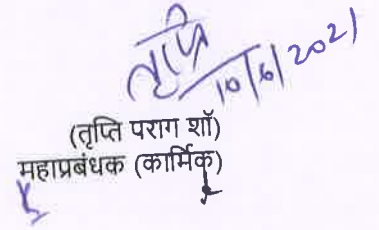 तृप्ति
10/6/2021
(तृप्ति पराग शॉ)
महाप्रबंधक (कार्मिक)